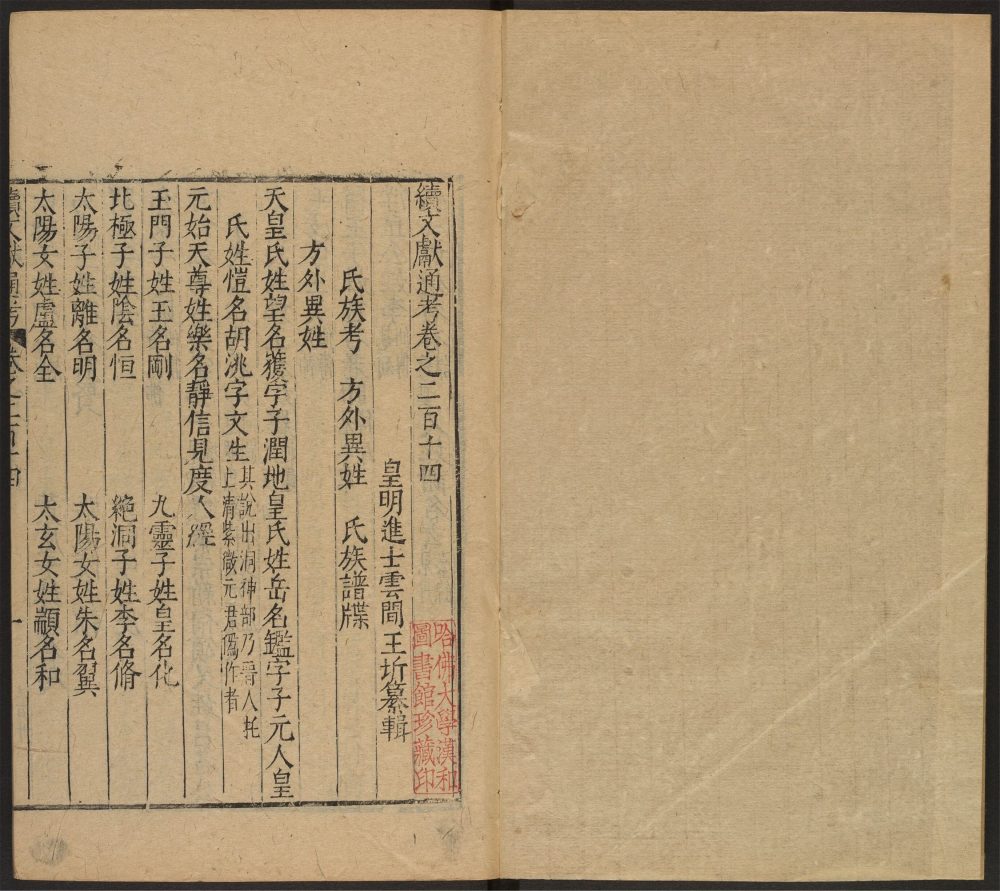 續文獻通考卷之二百十四
皇明進士雲間王圻纂輯
氏族考 方外異姓 氏族譜牒
方外異姓
天皇氏姓望名獲字子潤地皇氏姓岳名鑑字子元人皇
氏姓愷名胡洮字文生其說出洞神部乃晉人托
上清紫微元君僞作者
元始天尊姓樂名靜信見度人經
玉門子姓王名剛 九靈子姓皇名化
北極子姓陰名恒 絶洞子姓李名脩
太陽子姓離名明 太陽女姓朱名翼
太陽女姓盧名全 太玄女姓顓名和
續文獻通考 卷之二百十四 一
哈佛大學漢和
圖書館珍藏印